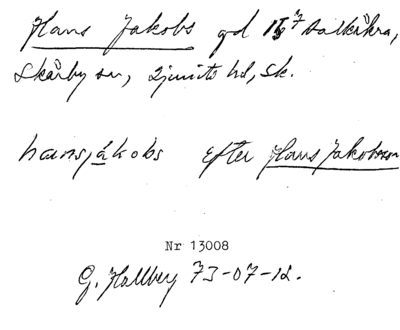 Hans Jakobs gd 15⁷ Balkåkra,
Skårby sn, Ljunits hd, Sk.
hansjákobs efter Hans Jakobsson
Nr 13008
G. Hallberg 73-07-12.